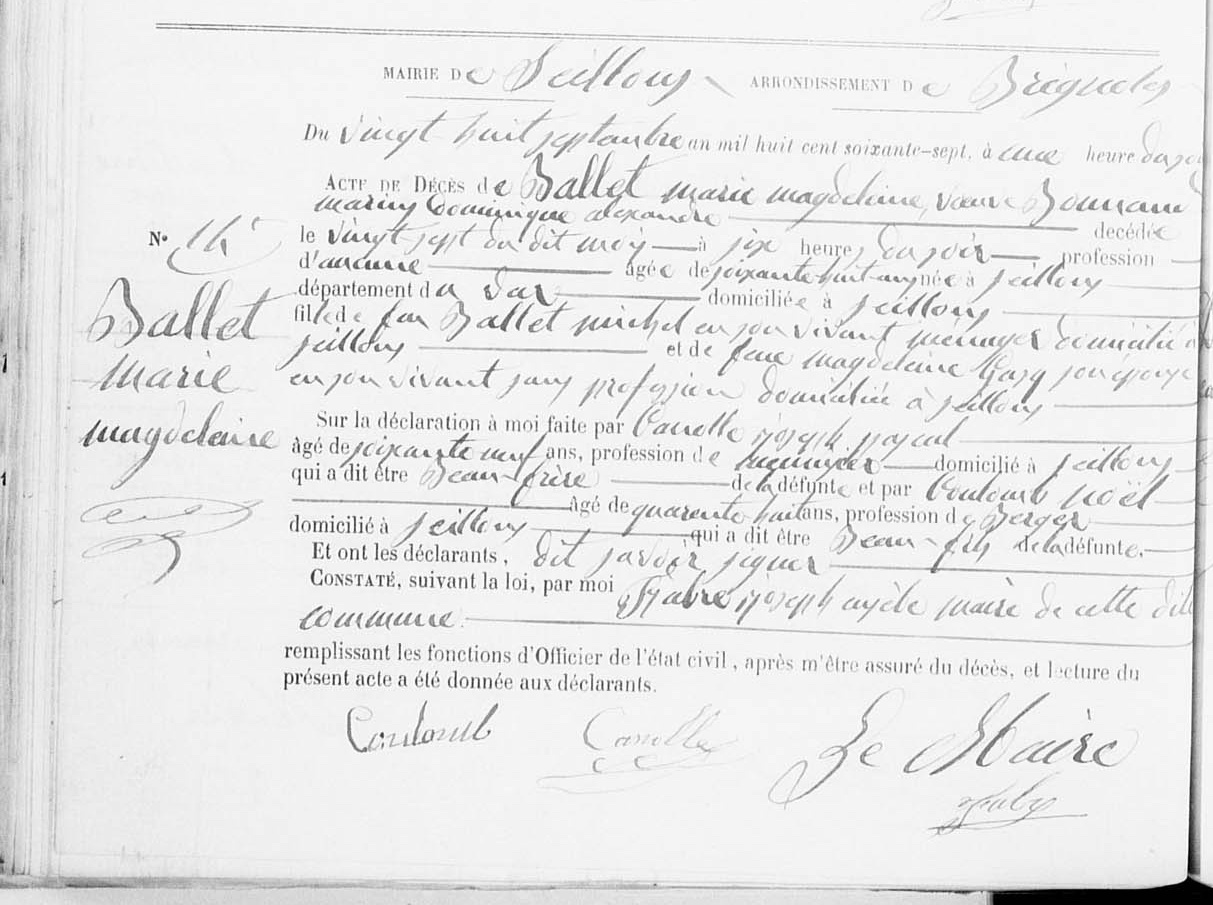 MAIRIE De Seillons ARRONDISSEMENT De Brignoles
Du vingt huit septembre an mil huit cent soixante-sept, à une heure du soir
ACTE DE DÉCÈS de Ballet marie magdelaine, veuve Bonnaud
marius Dominique alexandre decédée
N° 14
le vingt sept du dit mois à six heures du soir profession
d'aucune âgée de soixante huit ans née à seillons
département du var domiciliée à seillons
Ballet
marie
magdelaine
fille de feu Ballet michel en son vivant ménager domicilié à
seillons et de feue magdelaine son épouse
en son vivant sans profession domiciliée à seillons
Sur la déclaration à moi faite par Canolle joseph pascal
âgé de soixante neuf ans, profession de domicilié à seillons
qui a dit être Beau-frère de la défunte et par Coulomb noël
âgé de quarante huit ans, profession de Berger
domicilié à seillons qui a dit être Beau-fils de la défunte.
Et ont les déclarants, dit savoir signer
CONSTATÉ, suivant la loi, par moi Fabre joseph maire de cette dite
commune.
remplissant les fonctions d'Officier de l'état civil, après m'être assuré du décès, et lecture du
présent acte a été donnée aux déclarants.
Coulomb Canolle Le Maire